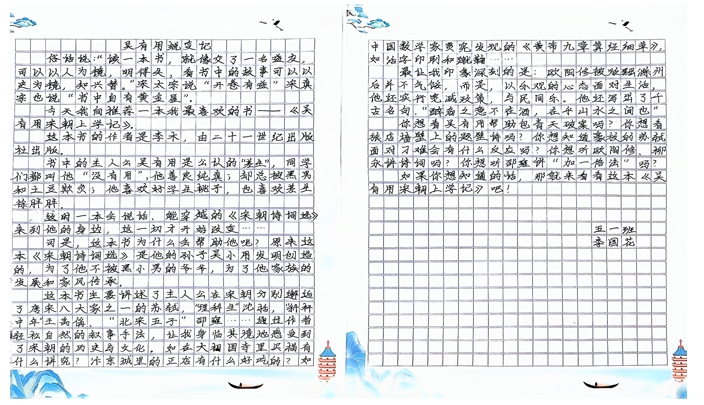 吴有用蜕变记
俗话说："读一本书，就像交了一名益友，
可以以人为镜，明得失，看书中的故事可以以
史为镜，知兴替。"宋太宗说"开卷有益"宋真
宗也说"书中自有黄金屋"。
今天我向推荐一本我最喜欢的书——《吴
有用宋朝上学记》。
这本书的作者是李永，由二十一世纪出版
社出版。
书中的主人公吴有用是公认的"差生"，同学
们都叫他"没有用"，他善良纯真；却总被黑男
和土豆欺负；他喜欢好学生桃子，也喜欢差生
徐胖胖。
这时一本会说话、能穿越的《宋朝诗词选》
来到他的身边，这一切才开始改变……
可是，这本书为什么会帮助他呢？原来这
本《宋朝诗词选》是他的孙子吴小用发明创造
的，为了他不被黑小男的爷爷，为了他家族的
发展和家风传承。
这本书主要讲述了主人公在宋朝分别邂逅
了唐宋八大家之一的苏轼，"理科生"沈括，
王禹偁，"北宋五子"邵雍……通过作者
轻松自然的叙事手法，让我身临其境地感受到
了宋朝的历史与文化。如在大相国寺里买福有
什么讲究？汴京城里的正店有什么好吃的？如
中国数学家贾宪发现的《黄帝九章算经细草》，
如活字印刷和蹴鞠……
最让我印象深刻的是：欧阳修被贬到滁州
后并不气馁，而是，以乐观的心态面对生活，
他还实行宽减政策，与民同乐。他还写出了千
古名句，"醉翁之意不在酒，在乎山水之间也"
你想看吴有用帮助包青天破案吗？你想看
扶店墙壁上的题壁诗吗？你想知道豪放的苏轼
面对刁难会有什么反应吗？你想听欧阳修、柳
永讲诗词吗？你想听邵雍讲"加一倍法"吗？
如果你想知道的话，那就来看看这本《吴
有用宋朝上学记》吧！
五一班
李国花